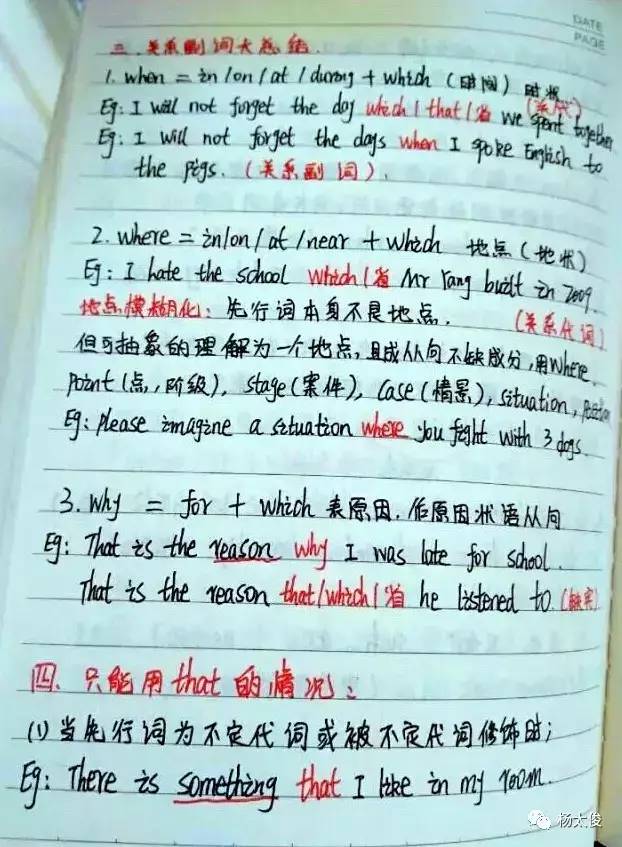 DATE
PAGE
三、关系副词大总结.
1. when = in / on / at / during + which (时间) 时状
Eg: I will not forget the day which / that / 省 we spent together (关代)
Eg: I will not forget the days when I spoke English to
the pigs. (关系副词).
2. where = in/on/ at / near + which 地点 (地状)
Eg: I hate the school which / 省 Mr Yang built in 2009.
地点模糊化: 先行词本身不是地点. (关系代词)
但可抽象的理解为一个地点,且成从句不缺成分,用where.
Point (点,阶级), stage (案件), case (情景), situation, position
Eg: please imagine a situation where you fight with 3 dogs.
3. why = for + which 表原因. 作原因状语从句
Eg: That is the reason why I was late for school.
That is the reason that/which / 省 he listened to. (缺宾)
四、只能用that的情况:
(1) 当先行词为不定代词或被不定代词修饰时;
Eg: There is something that I like in my room.
杨太俊